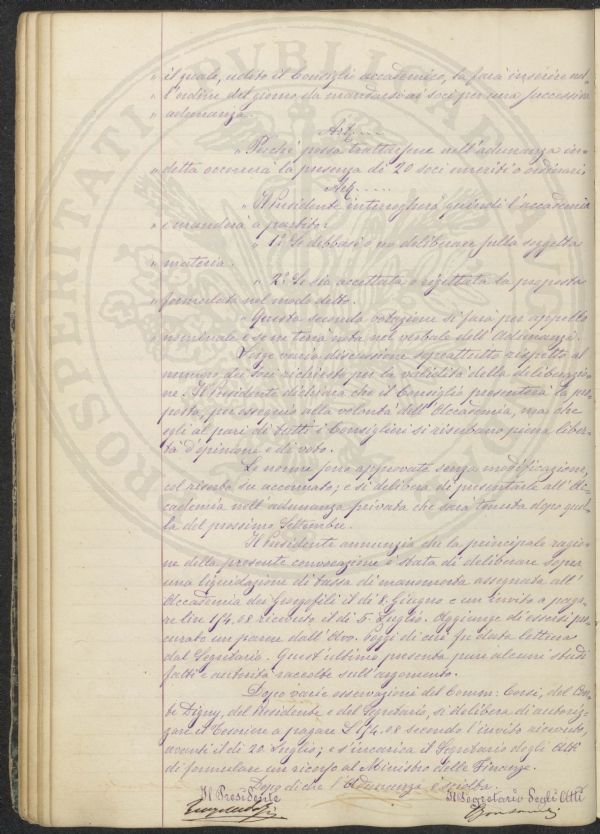 " il quale, udito il Consiglio accademico, la farà inserire nel-
" l'ordine del giorno da mandarsi ai soci per una successiva
" adunanza.
Art. ....
" Perchè possa trattarsene nell'adunanza in-
" detta occorrerà la presenza di 20 soci emeriti o ordinari
Art. .....
" Il Presidente interrogherà quindi l'accademia
" e manderà a partito:
" 1.° Se debbasi o no deliberare sulla soggetta
" materia.
" 2.° Se sia accettata o rigettata la proposta
" formulata nel modo detto.
" Questa seconda votazione si farà per appello
" nominale e se ne terrà nota nel verbale dell'Adunanza.
Sorge varia discussione soprattutto rispetto al
numero dei soci richiesto per la validità della deliberazio-
ne. Il Presidente dichiara che il Consiglio presenterà la pro-
posta, per ossequio alla volontà dell'Accademia, ma che
egli al pari di tutti i Consiglieri si riserbano piena liber-
tà d'opinione e di voto.
Le norme sono approvate senza modificazione,
col riserbo su accennato; e si delibera di presentarle all'Ac-
cademia nell'adunanza privata che sarà tenuta dopo quel-
la del prossimo Settembre.
Il Presidente annunzia che la principale ragio-
ne della presente convocazione è stata di deliberare sopra
una liquidazione di tassa di manomorta assegnata all'
Accademia dei Georgofili il dì 8. Giugno e un invito a paga-
re lire 174.68 ricevuto il dì 5. Luglio. Aggiunge di essersi pro-
curato un parere dall'Avv. Poggi di cui fu data lettura
dal Segretario. Quest'ultimo presenta pure alcuni studi
fatti e autorità raccolte sull'argomento.
Dopo varie osservazioni del Comm: Corsi, del Con-
te Digny, del Presidente e del Segretario, si delibera di autoriz-
zare il Tesoriere a pagare L. 174.68 secondo l'invito ricevuto,
avanti il dì 20 Luglio; e s'incarica il Segretario degli Atti
di formulare un ricorso al Ministro delle Finanze.
Dopo di che l'Adunanza è sciolta.
Il Presidente Il Segretario degli Atti
PROSPERITATI PUBLICAE